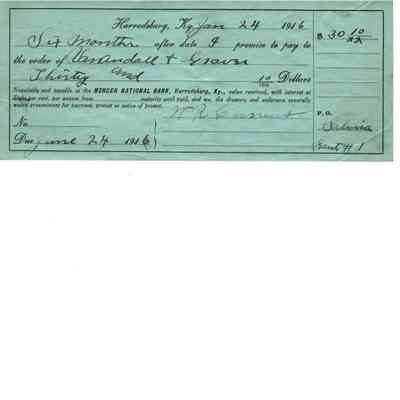 Harrodsburg, Ky. Jan 24 1916
$ 30 10/xx
Six Months after date I promise to pay to
the order of Vanandall & Graves
Thirty and 10/100 Dollars
Negotiable and payable at the MERCER NATIONAL BANK, Harrodsburg, Ky., value received, with interest at
per cent. per annum from maturity until paid, and we, the drawers and endorsers severally
waive presentment for payment, protest or notice of protest.
P. O.
Salvisa
No.
Due June 24 1916
# 1